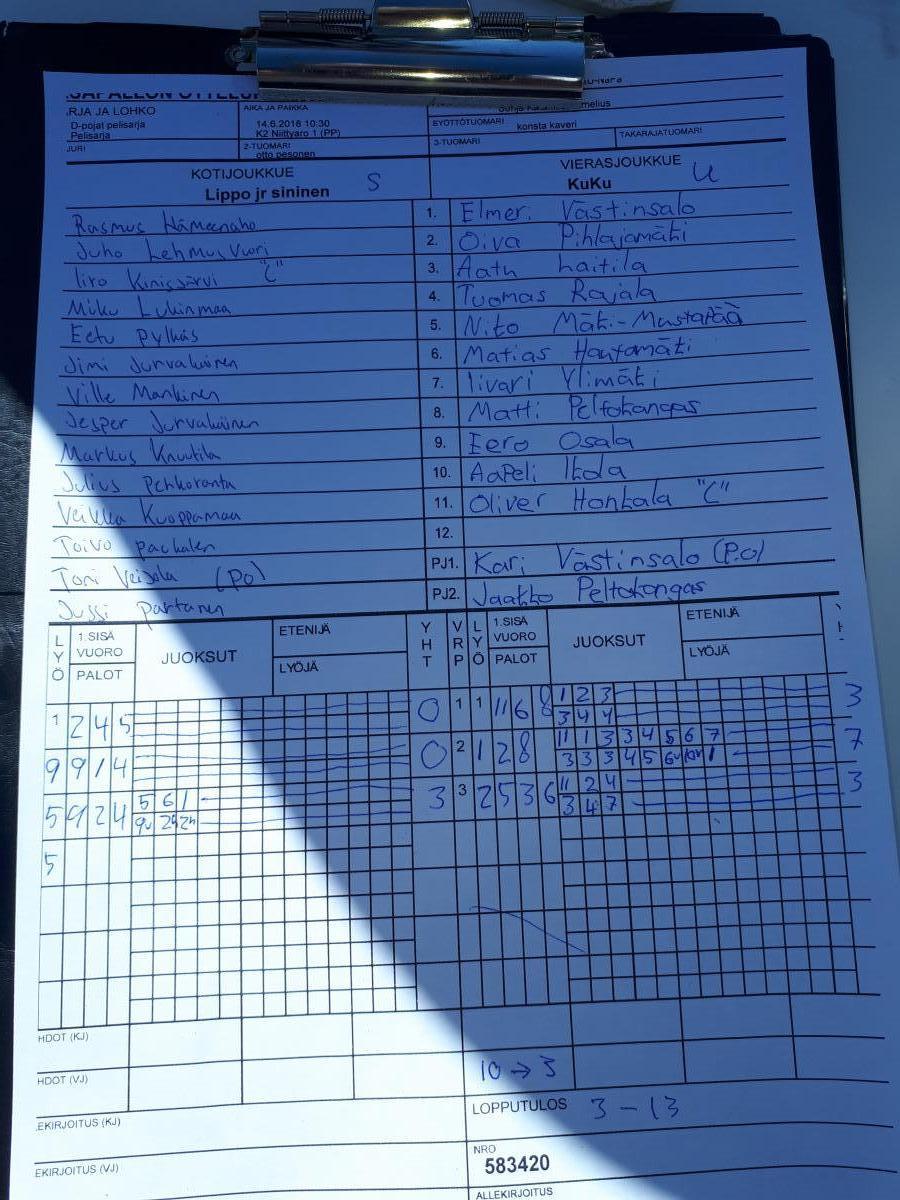 RJA JA LOHKO
D-pojat pelisarja
Pelisarja
AIKA JA PAIKKA
14.6.2018 10:30
K2 Niittyaro 1 (PP)
SYÖTTÖTUOMARI konsta kaveri
JURI
2-TUOMARI
otto pesonen
3-TUOMARI
TAKARAJATUOMARI
KOTIJOUKKUE S
Lippo jr sininen
VIERASJOUKKUE U
KuKu
Rasmus Hämeenaho 1. Elmeri Västinsalo
Juho Lehmusvuori 2. Oiva Pihlajamäki
Iiro Kinisjärvi "C" 3. Aatu Laitila
Miku Lukinmaa 4. Tuomas Rajala
Eetu Pylkäs 5. Nito Mäki-Mustapää
Jimi Jurvakainen 6. Matias Hautamäki
Ville Manninen 7. Iivari Ylimäki
Jesper Jurvakainen 8. Matti Peltokangas
Markus Knuutila 9. Eero Osala
Julius Penkoranta 10. Aapeli Ikola
Veikka Kuoppamaa 11. Oliver Honkala "C"
Toivo Packalen 12.
Toni Veijola (PO) PJ1. Kari Västinsalo (P.O)
Jussi Partanen PJ2. Jaakko Peltokangas
LYÖ 1.SISÄ VUORO PALOT JUOKSUT ETENIJÄ LYÖJÄ YHT VRP LYÖ 1.SISÄ VUORO PALOT JUOKSUT ETENIJÄ LYÖJÄ
1 2 4 5 0 1 1 11 6 8 1 2 3 3
3 4 4
9 9 1 4 0 2 1 2 8 11 1 3 3 4 5 6 7 7
3 3 3 4 5
5 9 2 4 5 6 1 3 3 2 5 3 6 11 2 4 3
9v 2h 2h 3 4 7
5
HDOT (KJ)
HDOT (VJ) 10 → 3
EKIRJOITUS (KJ)
LOPPUTULOS 3 - 13
EKIRJOITUS (VJ)
NRO
583420
ALLEKIRJOITUS